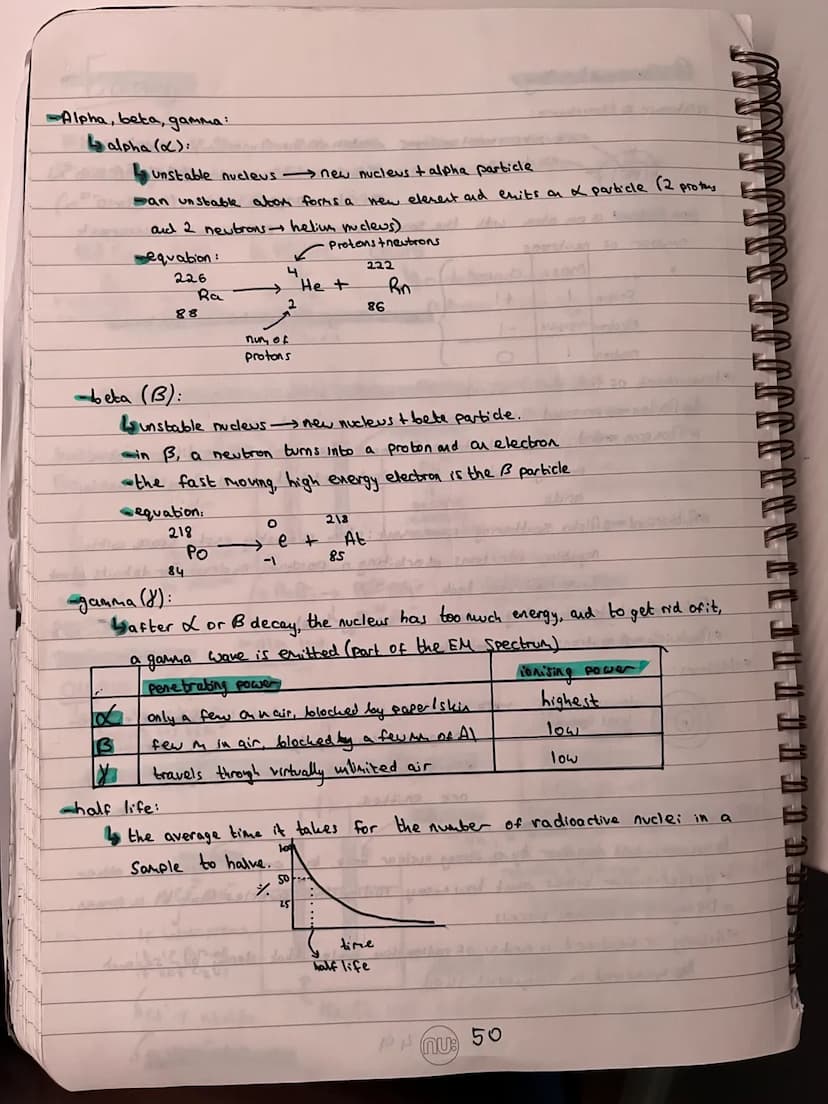 Alpha, beta, gamma:
↳ alpha (α):
↳ unstable nucleus → new nucleus + alpha particle
- an unstable atom forms a new element and emits an α particle (2 protons
and 2 neutrons → helium nucleus)
- equation:
protons + neutrons
226 4 222
Ra → He + Rn
88 2 86
num of
protons
- beta (β):
↳ unstable nucleus → new nucleus + beta particle.
- in β, a neutron turns into a proton and an electron
- the fast moving, high energy electron is the β particle
- equation:
218 0 218
Po → e + At
84 -1 85
- gamma (γ):
↳ after α or β decay, the nucleus has too much energy, and to get rid of it,
a gamma wave is emitted (part of the EM spectrum)
penetrating power ionising power
α only a few cm in air, blocked by paper/skin highest
β few m in air, blocked by a few mm of Al low
γ travels through virtually unlimited air low
- half life:
↳ the average time it takes for the number of radioactive nuclei in a
sample to halve.
100
50
%
25
time
half life
nu: 50